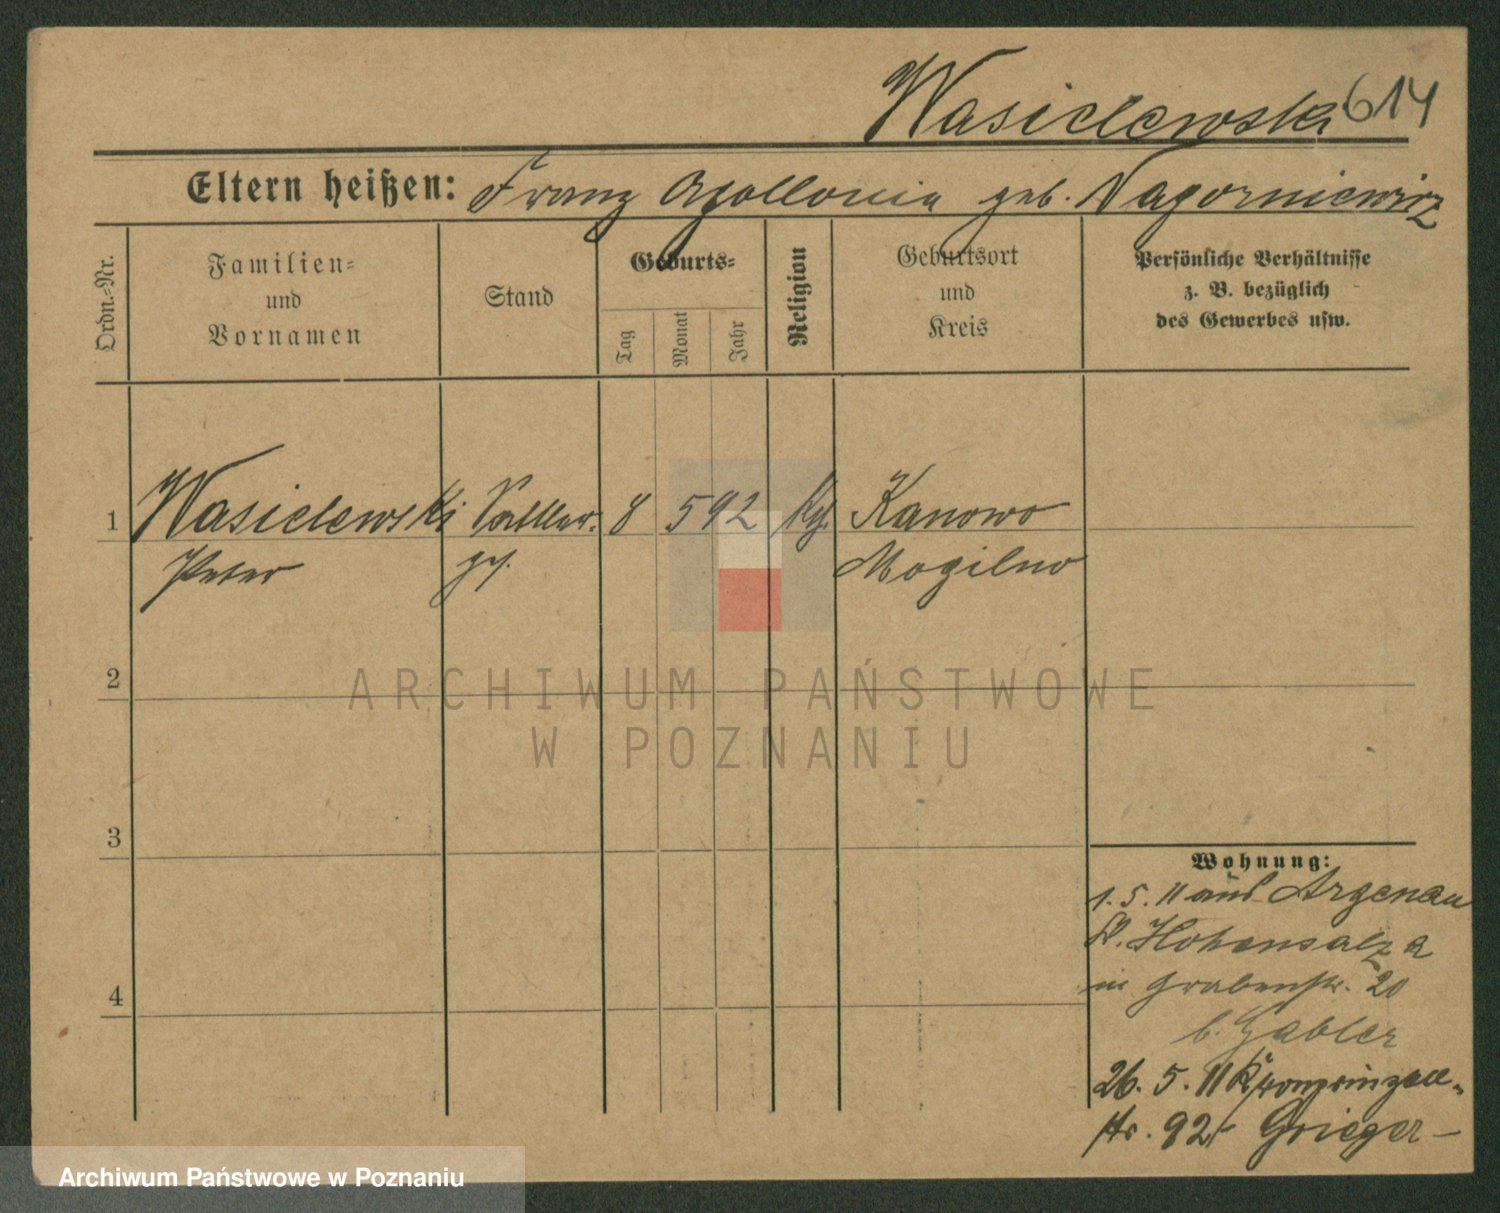 Wasielewski 614
Eltern heißen: Franz Apollonia geb. Nagorniewicz
Ordn.-Nr.
Familien-
und
Vornamen
Stand
Geburts-
Tag
Monat
Jahr
Religion
Geburtsort
und
Kreis
Persönliche Verhältnisse
z. B. bezüglich
des Gewerbes usw.
1 Wasielewski Sattler- 8 5 92 kg. Kanowo
Peter gs. Mogilno
2
3
4
Wohnung:
1. 5. 11 aus Argenau
Kr. Hohensalza
in Grabenstr. 20
b. Gabler
26. 5. 11 Kronprinzen-
str. 92 Grieger
ARCHIWUM PAŃSTWOWE
W POZNANIU
Archiwum Państwowe w Poznaniu